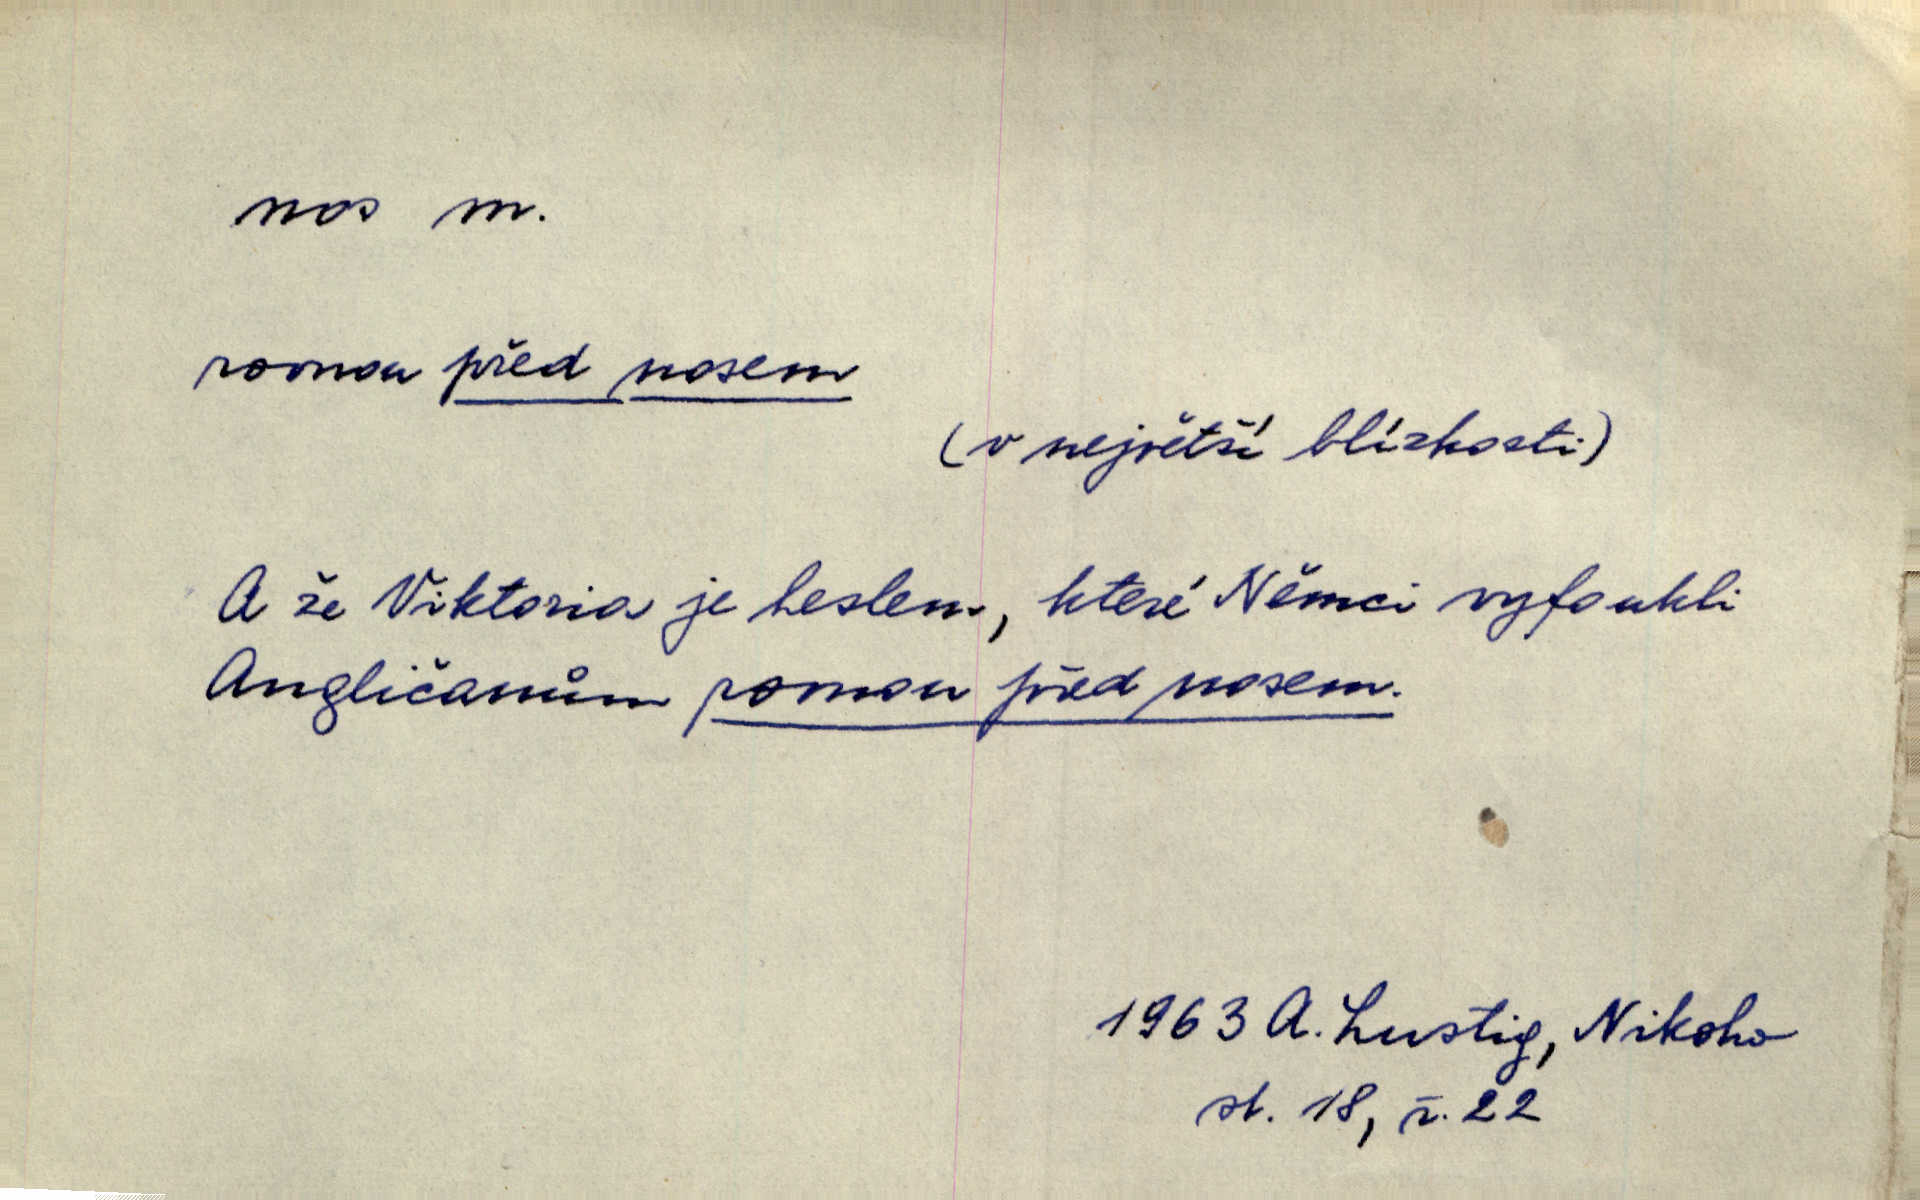 nos m.
rovnou před nosem
(v největší blízkosti)
A že Viktoria je heslem, které Němci vyfoukli
Angličanům rovnou před nosem.
1963 A. Lustig, Nikoho
st. 18, ř. 22